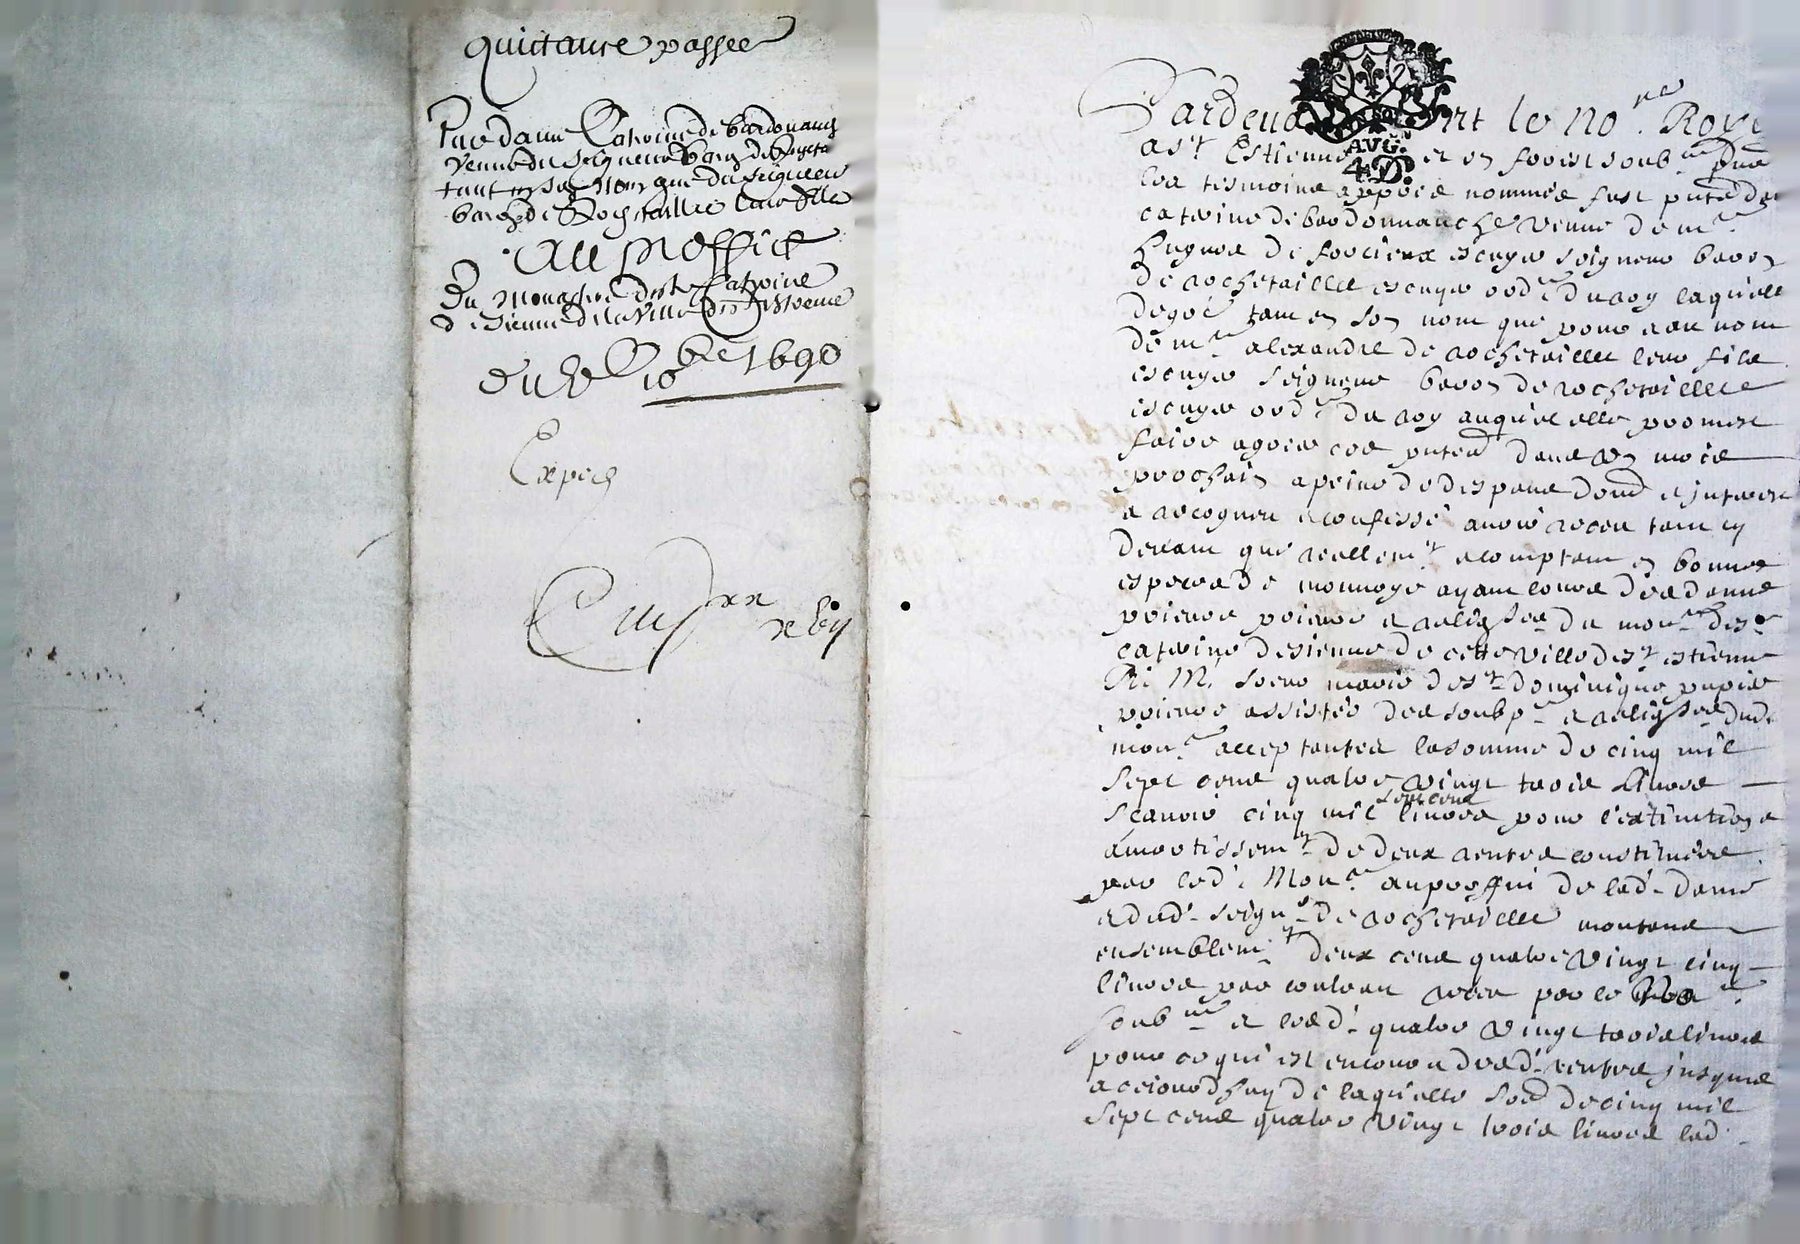 quictance passee
Par dame Catherine de bardonanch
venve du seigneur baron de Rocheta
tant en son nom que du seigneur
baron de Rochetaillee leur fils
Au proffict
Du Monastere de ste Catherine
de sienne de la ville de st Estienne
Du 10bre 1690
Exped
Pardevant le no.re Royal
a st Estienne et en forest soubne
les tesmoins appres nommés fust pnte dame
catherine de bardonnanche venve de mre
hugues de escuyer seigneur baron
de rochetaillee escuyer ord.re du roy laquelle
de gré tant en son nom que pour et au nom
de mre alexandre de rochetaillee leur fils
escuyer seigneur baron de rochetaillee
escuyer ord.re du roy auquel elle promest
faire agreer ces pntes dans un mois
prochain a peine de despans dom. et jnterest
a recogneu et confessé avoir receu tant cy
devant que reellemt et comptant en bonnes
especes de monnoye ayant cours des dames
prieure et religses du mon.re de ste
catherine de sienne de cette ville de st estienne
R. M. soeur marie de st dominique pupier
prieure assistée des soubp.re et religses dud.
mon.re acceptantes la somme de cinq mil
sept cens quatre vingt trois livres
scavoir cinq mil sept cens livres pour l'extinction et
amortissemt de deux rentes constituées
par led. Mon.re au proffit de lad. dame
et dud. seigr de rochetaillee montans
ensemblemt deux cens quatre vingt cinq
livres par contrat receu par le no.re
soubne et lesd. quatre vingt trois livres
pour ce qui est encouru desd. rentes jusques
a cejourdhuy de laquelle som. de cinq mil
sept cens quatre vingt trois livres lad.
AVG.
4 D.